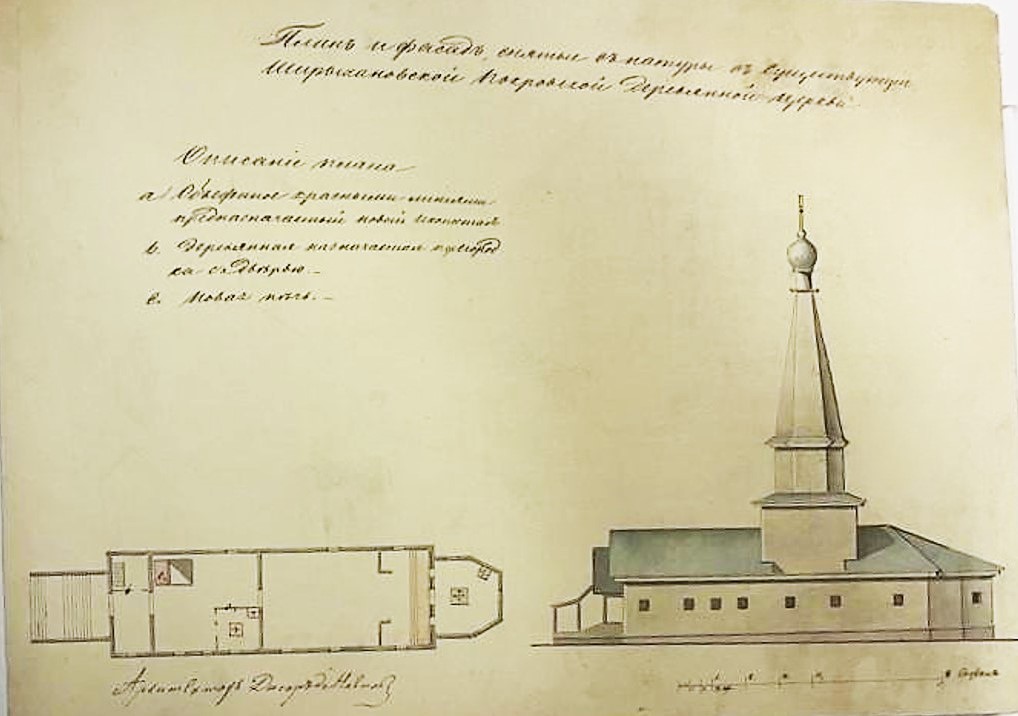 Планъ и фасадъ, снятые съ натуры съ существующей
Ширыхановской Покровской Деревянной церкви
Описаніе плана
а)
предназначаемый новый иконостасъ
b. Деревянная назначаемая перегород
ка съ дверью. —
c. Новая печь. —
a b c
Архитекторъ